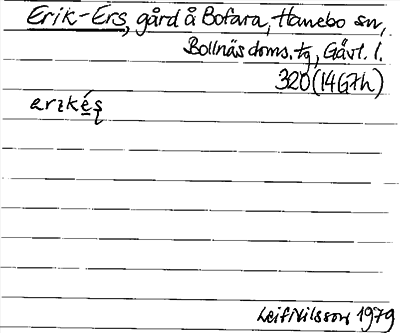 Erik-Ers, gård å Bofara, Hanebo sn,
Bollnäs doms. tg, Gävl. l.
320 (14G7h)
Leif Nilsson 1979